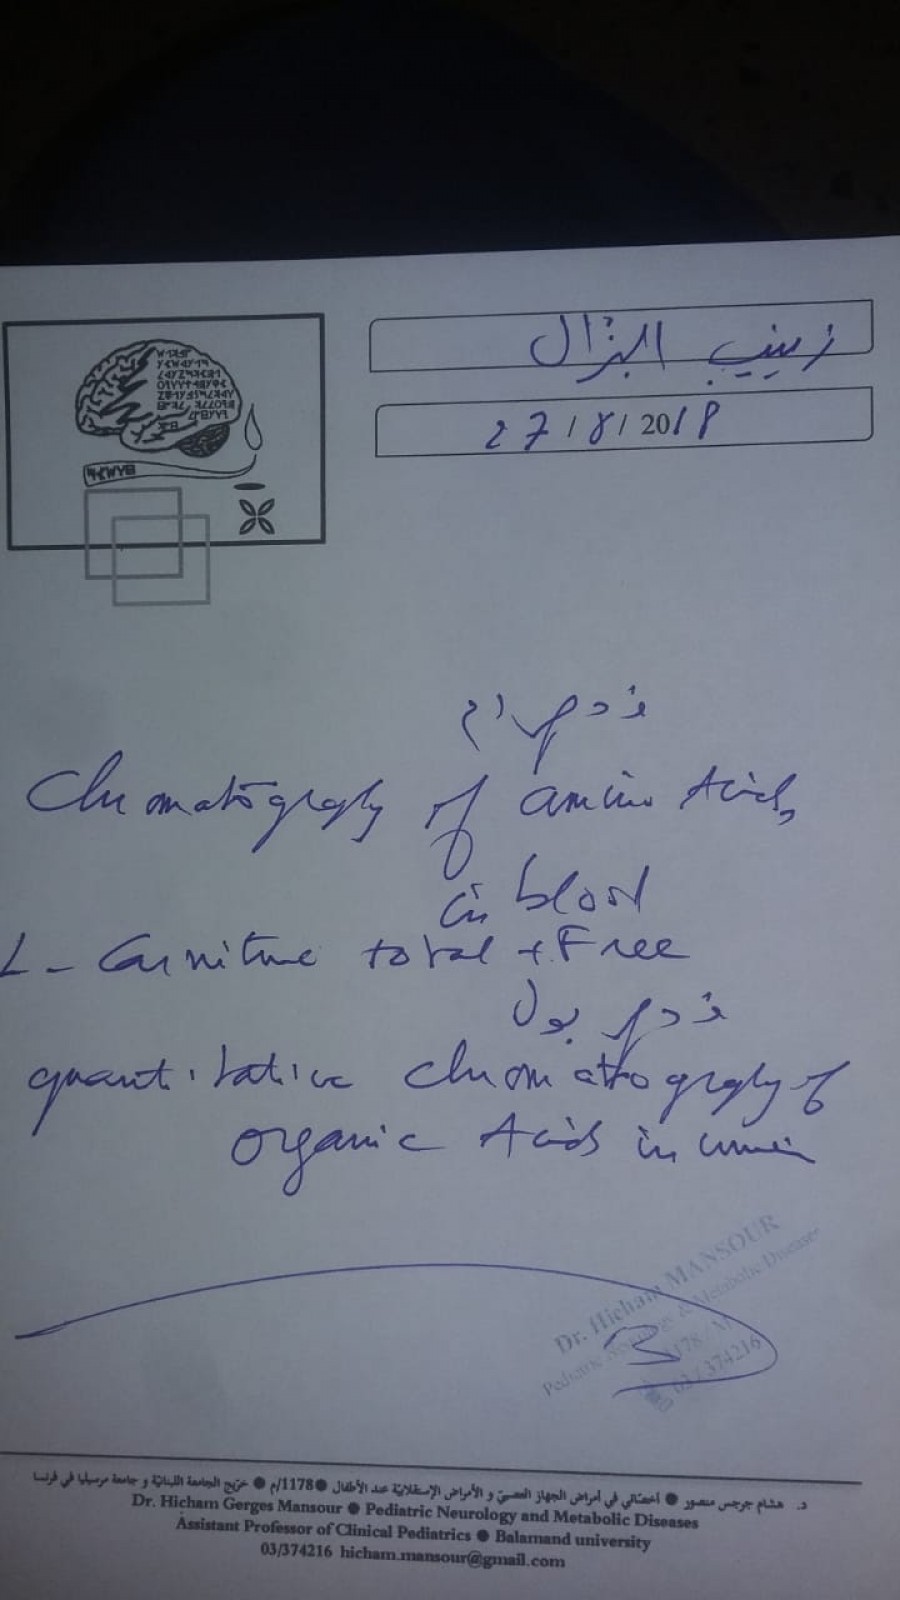 زينب البزال
27/8/2018
فحص دم
Chromatography of amino Acids
in blood
L-Carnitine total + Free
فحص بول
quantitative chromatography of
organic Acids in urine
Dr. Hicham MANSOUR
Pediatric Neurology & Metabolic Diseases
1178/M
03/374216
د. هشام جرجس منصور ● أخصائي في أمراض الجهاز العصبي و الأمراض الإستقلابيّة عند الأطفال ● 1178/م ● خرّيج الجامعة اللبنانيّة و جامعة مرسيليا في فرنسا
Dr. Hicham Gerges Mansour ● Pediatric Neurology and Metabolic Diseases
Assistant Professor of Clinical Pediatrics ● Balamand university
03/374216 hicham.mansour@gmail.com